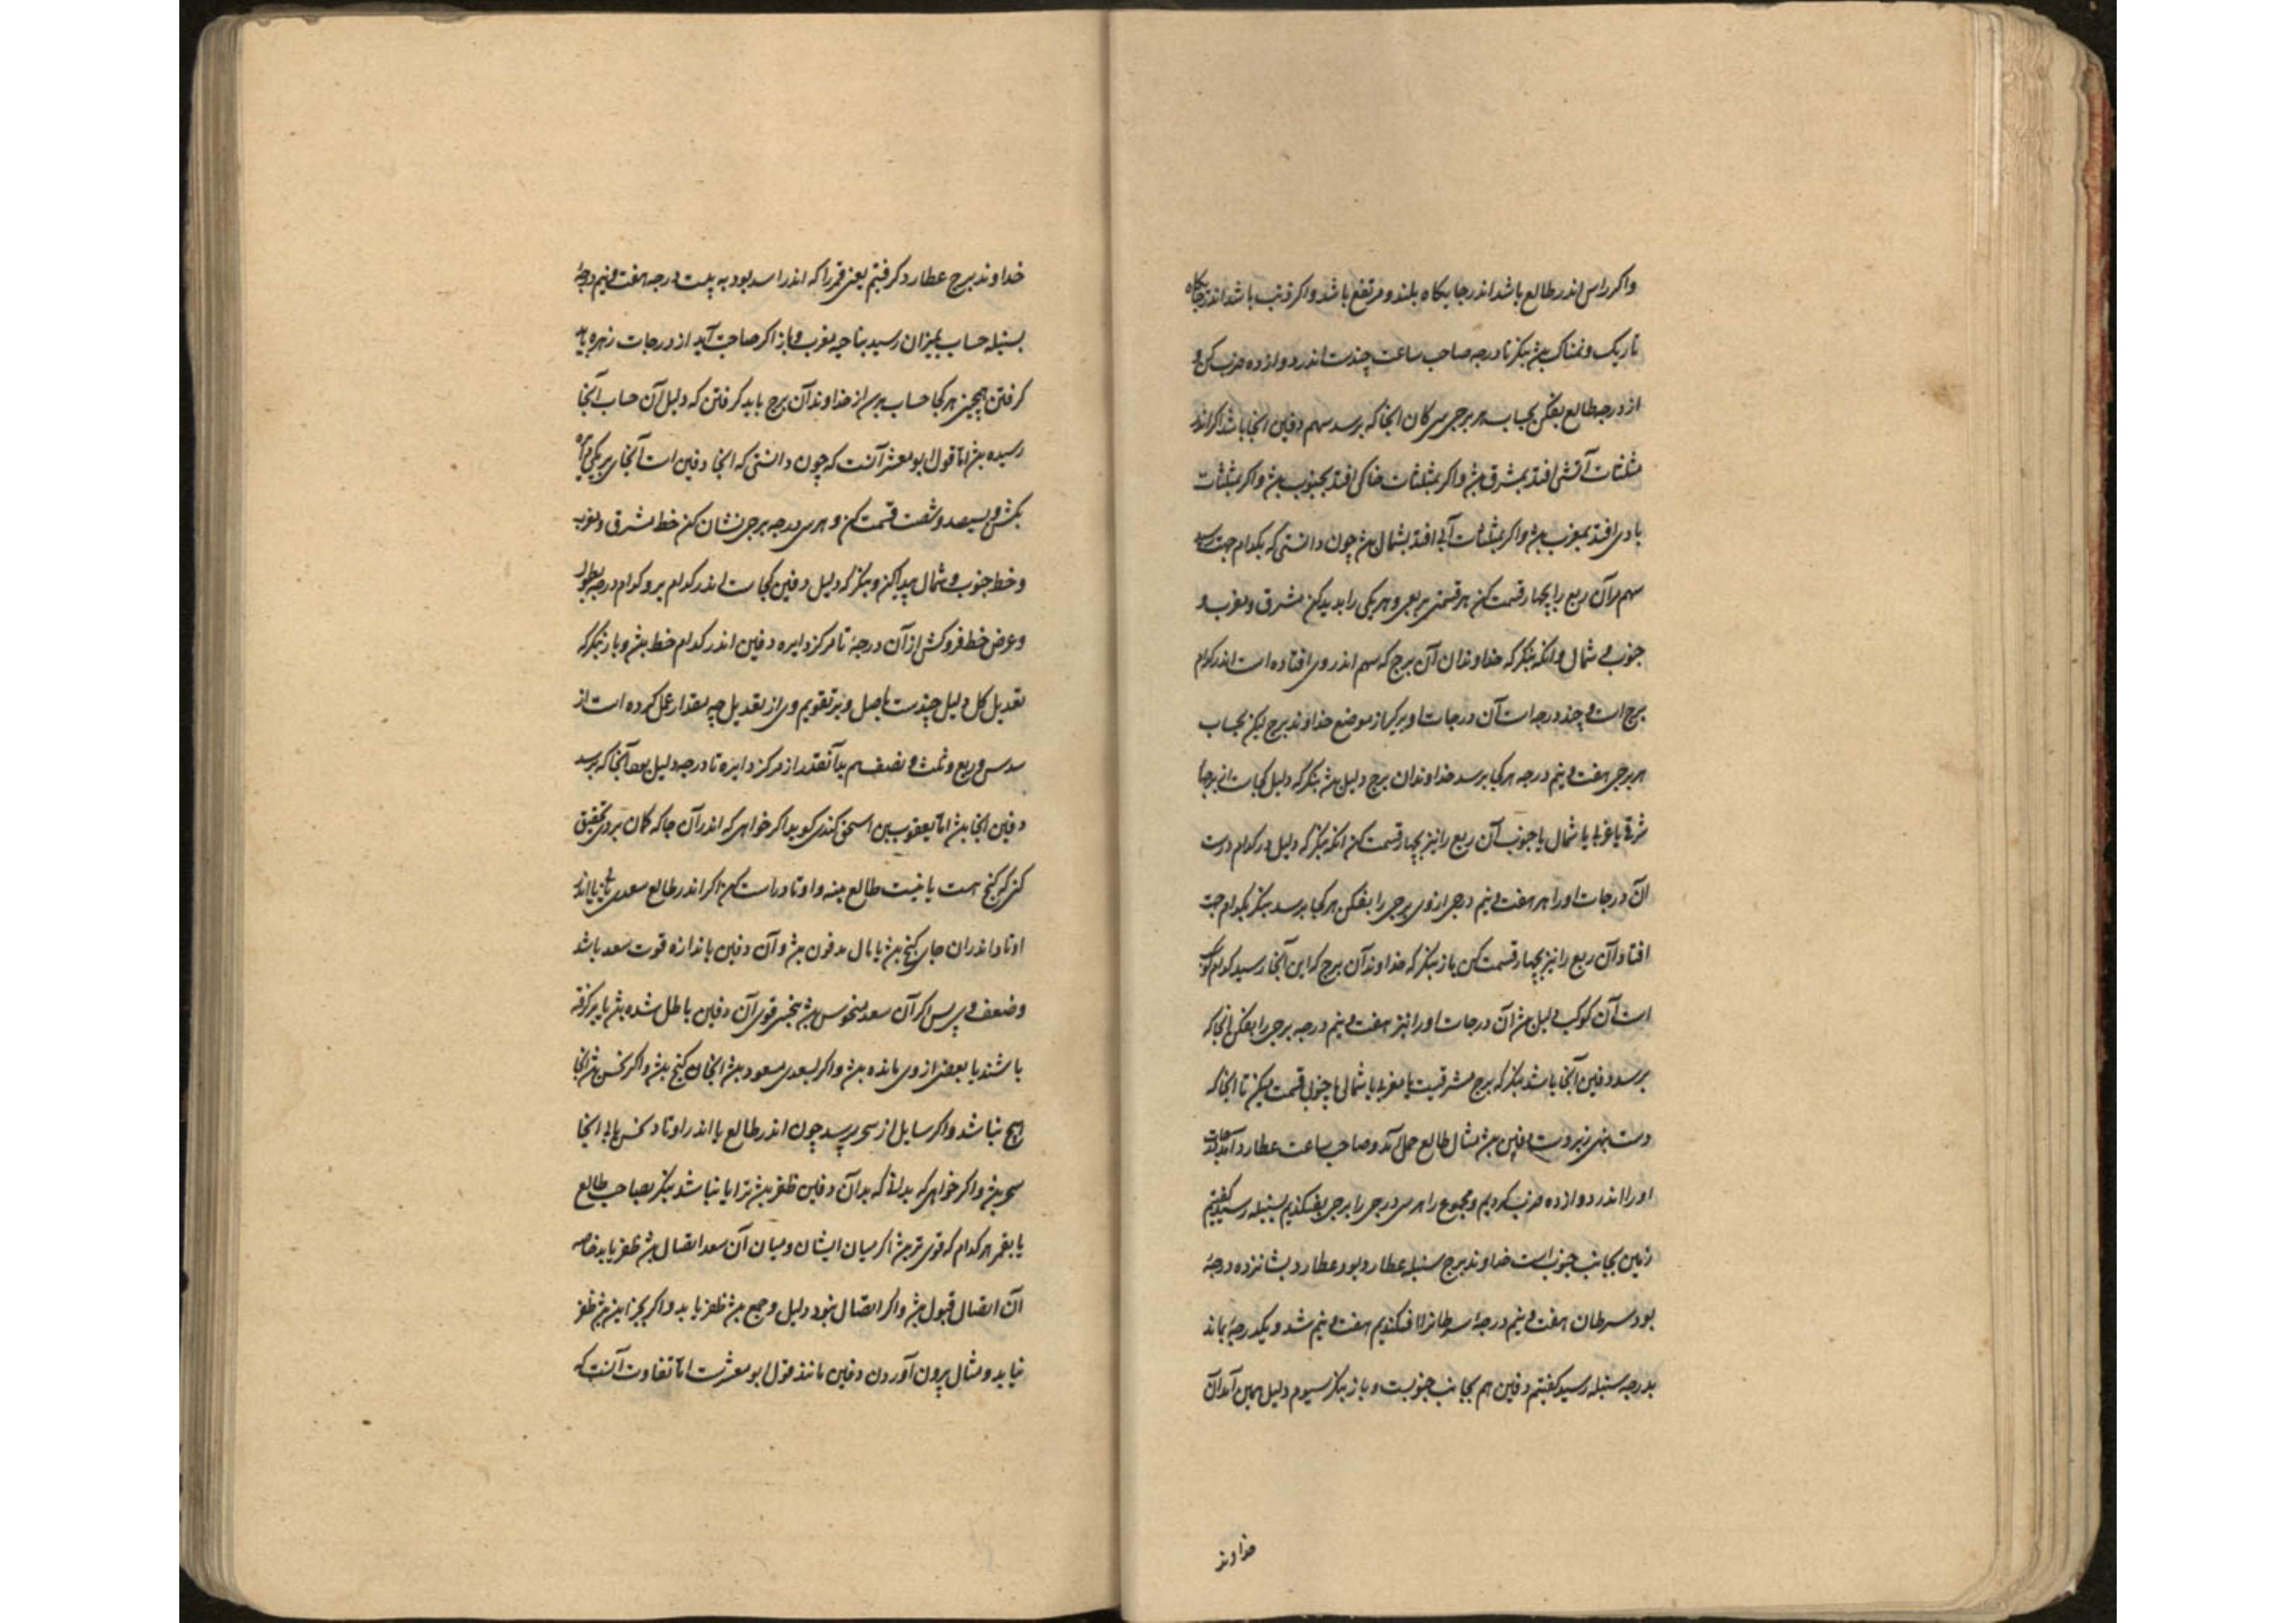 واکر راس اندر طالع باشد اندر جایکاه بلند و مرتفع باشد واکر ذنب باشد اندر جایکاه
تاریک و نمناک بنکر تا درجه صاحب ساعت چندست اندر دوازده ضرب کن و
از درجه طالع بفکن بحساب هر برجی سی کان انجا که برسد سهم دفین انجا باشد اکر اندر
مثلثات آتشی افتد بمشرق بشد واکر بمثلثات خاکی افتد بجنوب بشد واکر بمثلثات
بادی افتد بمغرب بشد واکر بمثلثات آبی افتد بشمال بشد چون دانستی که بکدام جهت رسید
سهم مرآن ربع را بچهار قسمت کن هر قسمتی ربعی و هریکی را بدید کن مشرق و مغرب و
جنوب و شمال وانکه بنکر که خداوندان آن برج که سهم اندر وی افتاده است اندر کدام
برج است و چند درجه است آن درجات او برکیر از موضع خداوند برج بحساب
هر برجی هفت و نیم درجه هرکجا برسد خداوندان برج دلیل بشد بنکر که دلیل کجاست
شرقی یا غربی یا شمال یا جنوب آن ربع را نیز بچهار قسمت کن انکه بنکر که دلیل در کدام درست
آن درجات او را هر هفت و نیم درجی ازوی برجی را بفکن هرکجا برسد بنکر بکدام جهت
افتاد آن ربع را نیز بچهار قسمت کن باز بنکر که خداوند آن برج که این آنجا رسید کدام کوکب
است آن کوکب دلیل بشد آن درجات او را نیز هفت و نیم درجه برجی را بفکن آنجا که
برسد دفین آنجا باشد بنکر که برج مشرقیست یا مغربی یا شمالی یا جنوبی قسمت میکن تا انجا که
دست بنهی زیر دست دفین بشد مثال طالع حمل آمد و صاحب ساعت عطارد آمد
او را اندر دوازده ضرب کردیم و مجموع را هر سی درجی را برجی بفکندیم بسنبله رسید کفتیم
زمین بجانب جنوب است خداوند برج سنبله عطارد بود و عطارد بشانزده درجهٔ
بود سرطان هفت و نیم درجهٔ سرطانرا افکندیم هفت و نیم شد و یکدرجهٔ بماند
بدرجه سنبله رسید کفتیم دفین هم بجانب جنوبست و باز بنکر سیوم دلیل همین آمد آن
خداوند
خداوند برج عطارد کرفتیم یعنی قمر را که اندر اسد بود به بیست درجه هفت و نیم درجهٔ
بسنبله حساب بمیزان رسید بناحیه مغرب و باز اکر صاحبت آید از درجات زهره باید
کرفتن همچنین هرکجا حساب برسد از خداوند آن برج باید کرفتن که دلیل آن حساب آنجا
رسیده بشد اما قول بومعشر آنست که چون دانستی که انجا دفین است آنجا
بکش و بسیصد و شصت قسمت کن و هر سی درجه برجی نشان کن خط مشرق و مغرب
و خط جنوب و شمال پیدا کن و بنکر که دلیل دفین کجاست اندر کدام برج و کدام درجه بطول
و عرض خط فروکش از آن درجهٔ تا مرکز دایره دفین اندر کدام خط بشد و باز بنکر که
تعدیل کل دلیل چندست باصل و بر تقویم وی از تعدیل چه مقدار عمل کرده است از
سدس و ربع و ثلث و نصف هم بدآنقدر از مرکز دایره تا درجه دلیل آنجا که برسد
دفین انجا بشد اما یعقوب بن اسحق کندی کوید اکر خواهی که اندر آن جا که کمان بردی تحقیق
کنی که کنج هست یا نیست طالع بنه و اوتاد راست کن اکر اندر طالع سعدی یابی یا اندر
اوتاد اندران جای کنج بشد یا مال مدفون بشد و آن دفین باندازه قوت سعد باشد
و ضعف وی پس اکر آن سعد منحوس بشد بنحسی قوی آن دفین باطل شده بشد یا برکرفته
باشند یا بعضی ازوی مانده بشد واکر بسعدی مسعود بشد انجا کنج بشد واکر نحس بشد انجا
هیچ نباشد واکر سایل از سحر پرسد چون اندر طالع یا اندر اوتاد نحس یابی انجا
سحر بشد واکر خواهی که بدانی که بدآن دفین ظفر بشد ترا یا نباشد بنکر بصاحب طالع
یا بقمر هرکدام که قوی تر بشد اکر میان ایشان و میان آن سعد اتصال بشد ظفر یابد خاصه
آن اتصال قبول بشد واکر اتصال نبود دلیل و جمع بشد ظفر یابد واکر بجز این بشد ظفر
نیابد و مثال بیرون آوردن دفین مانند قول ابو معشرست اما تفاوت آنست که